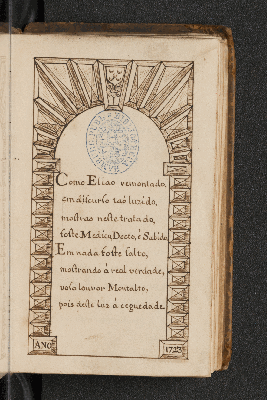 Como Eliao remontado,
em discurso taõ luzido,
mostras neste tratado,
foste Medico, Docto, e Sabido,
Em nada foste falto,
mostrando à real verdade,
voso louvor Montalto,
pois deste luz á ceguedade.
ANO 1723